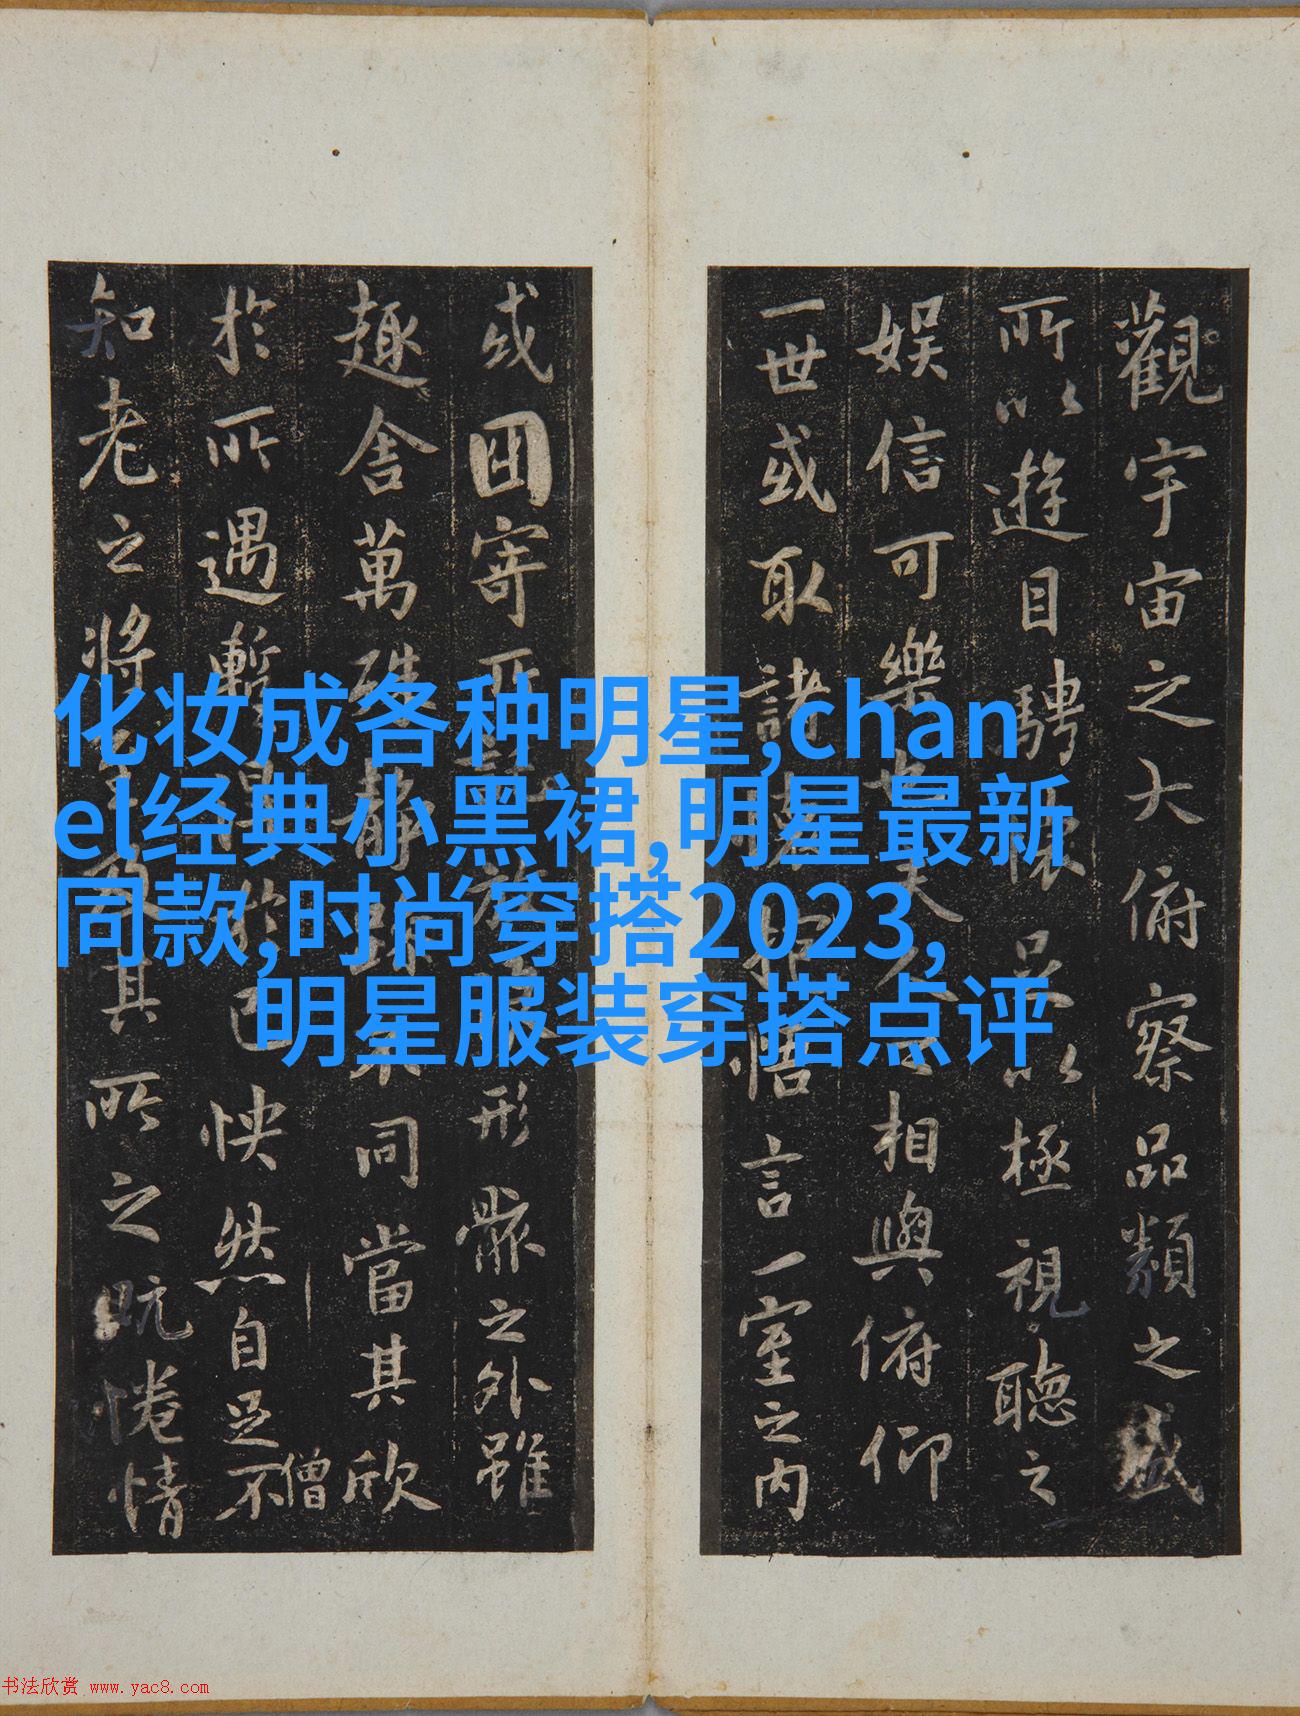 觀宇宙之大俯察品類之盛
所以遊目騁懷足以極視聽之
娛信可樂也夫人之相與俯仰
一世或取諸懷抱悟言一室之内
或因寄所託放浪形骸之外雖
趣舍萬殊靜躁不同當其欣
僧
於所遇暫得於己怏然自足不
知老之將至及其所之既惓情
化妆成各种明星,chan
el经典小黑裙,明星最新
同款,时尚穿搭2023,
明星服装穿搭点评
书法欣赏 www.yac8.com